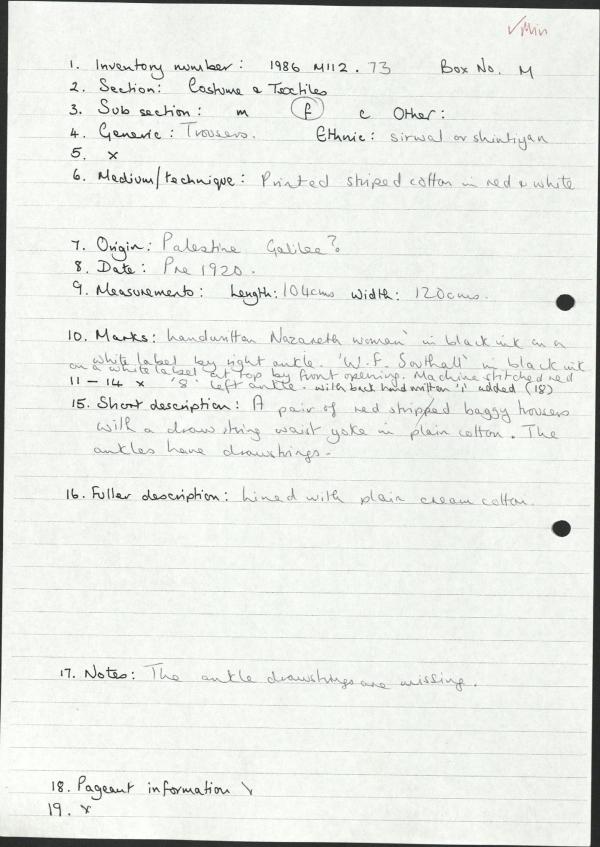 ✓Min
1. Inventory number: 1986 M112.73 Box No. M
2. Section: Costume & Textiles
3. Sub section: m f c Other:
4. Generic: Trousers. Ethnic: sirwal or shintiyan
5. x
6. Medium/technique: Printed striped cotton in red & white
7. Origin: Palestine Galilee?
8. Date: Pre 1920.
9. Measurements: Length: 104cms width: 120cms.
10. Marks: handwritten 'Nazareth women' in black ink on a
white label by right ankle. 'W.F. Southall' in black ink
on a white label at top by front opening. Machine stitched red
11 - 14 x '8' left ankle. with back hand written '1' added (18)
15. Short description: A pair of red stripped baggy trousers
with a draw string waist yoke in plain cotton. The
ankles have drawstrings.
16. Fuller description: Lined with plain cream cotton.
17. Notes: The ankle drawstrings are missing.
18. Pageant information x
19. x